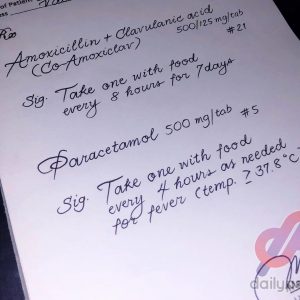 of Patient
Amoxicillin + Clavulanic acid
(Co-Amoxiclav) 500/125 mg/tab
#21
Sig. Take one with food
every 8 hours for 7days
Paracetamol 500 mg/tab #5
Sig. Take one with food
every 4 hours as needed
for fever (temp. ≥ 37.8°C